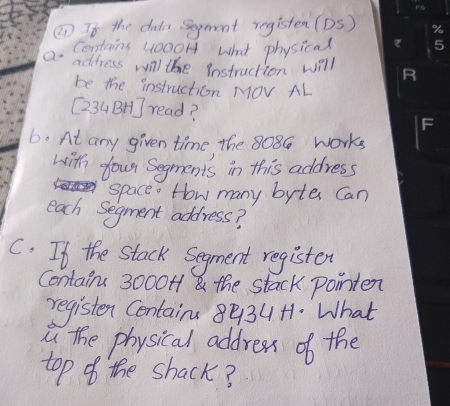 ④ If the data Segment register (DS)
a. Contains 4000H what physical
address will the instruction will
be the instruction MOV AL
[234BH] read?
b. At any given time, the 8086 works
with four Segments in this address
space. How many bytes Can
each Segment address?
C. If the Stack Segment register
Contains 3000H & the stack pointer
register Contains 8434H. What
is the physical address of the
top of the shack?
%
5
₹
R
F